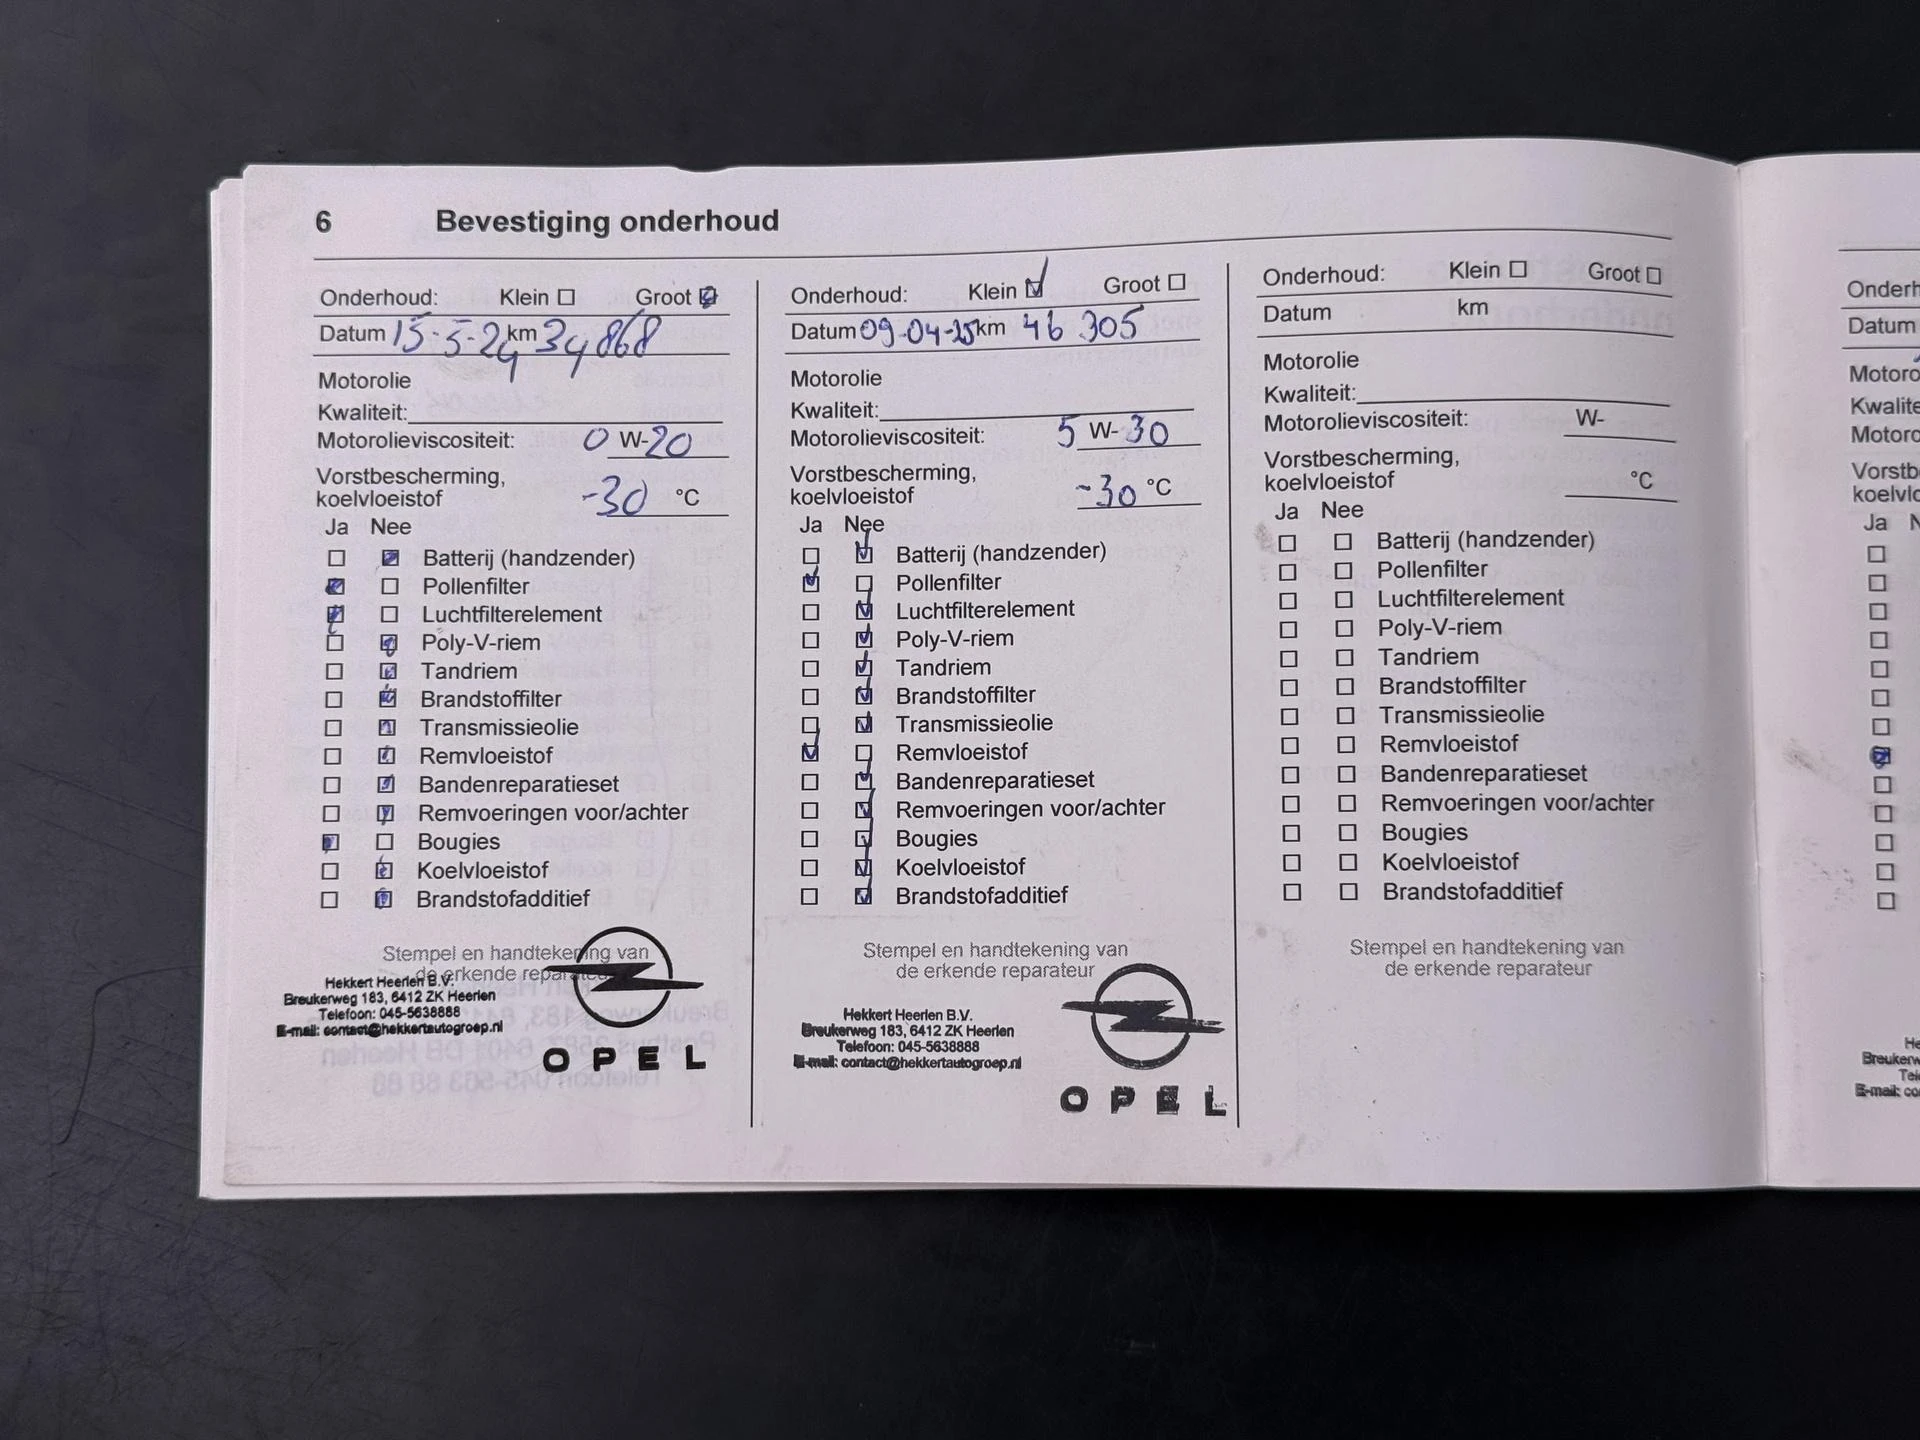 6 Bevestiging onderhoud
Onderhoud: Klein ☐ Groot ☑
Datum 15-5-24 km 34 868
Motorolie
Kwaliteit:
Motorolieviscositeit: 0 W-20
Vorstbescherming,
koelvloeistof -30 °C
Ja Nee
☐ ☑ Batterij (handzender)
☑ ☐ Pollenfilter
☑ ☐ Luchtfilterelement
☐ ☑ Poly-V-riem
☐ ☑ Tandriem
☐ ☑ Brandstoffilter
☐ ☑ Transmissieolie
☐ ☑ Remvloeistof
☐ ☑ Bandenreparatieset
☐ ☑ Remvoeringen voor/achter
☑ ☐ Bougies
☐ ☑ Koelvloeistof
☐ ☑ Brandstofadditief
Stempel en handtekening van
de erkende reparateur
Hekkert Heerlen B.V.
Breukerweg 183, 6412 ZK Heerlen
Telefoon: 045-5638888
E-mail: contact@hekkertautogroep.nl
OPEL
Onderhoud: Klein ☑ Groot ☐
Datum 09-04-25 km 46 305
Motorolie
Kwaliteit:
Motorolieviscositeit: 5 W-30
Vorstbescherming,
koelvloeistof -30 °C
Ja Nee
☐ ☑ Batterij (handzender)
☑ ☐ Pollenfilter
☐ ☑ Luchtfilterelement
☐ ☑ Poly-V-riem
☐ ☑ Tandriem
☐ ☑ Brandstoffilter
☐ ☑ Transmissieolie
☑ ☐ Remvloeistof
☐ ☑ Bandenreparatieset
☐ ☑ Remvoeringen voor/achter
☐ ☑ Bougies
☐ ☑ Koelvloeistof
☐ ☑ Brandstofadditief
Stempel en handtekening van
de erkende reparateur
Hekkert Heerlen B.V.
Breukerweg 183, 6412 ZK Heerlen
Telefoon: 045-5638888
E-mail: contact@hekkertautogroep.nl
OPEL
Onderhoud: Klein ☐ Groot ☐
Datum km
Motorolie
Kwaliteit:
Motorolieviscositeit: W-
Vorstbescherming,
koelvloeistof °C
Ja Nee
☐ ☐ Batterij (handzender)
☐ ☐ Pollenfilter
☐ ☐ Luchtfilterelement
☐ ☐ Poly-V-riem
☐ ☐ Tandriem
☐ ☐ Brandstoffilter
☐ ☐ Transmissieolie
☐ ☐ Remvloeistof
☐ ☐ Bandenreparatieset
☐ ☐ Remvoeringen voor/achter
☐ ☐ Bougies
☐ ☐ Koelvloeistof
☐ ☐ Brandstofadditief
Stempel en handtekening van
de erkende reparateur
Datum
Ja